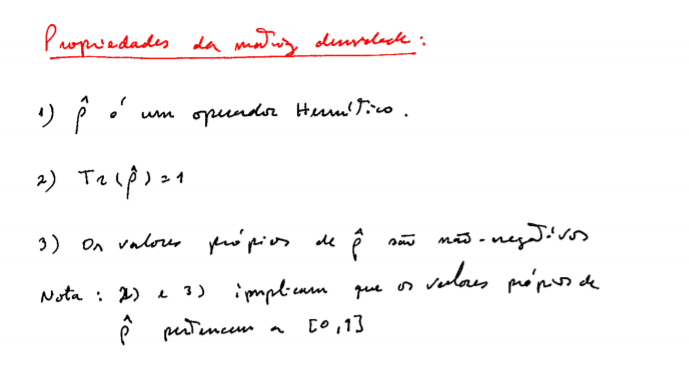 Propriedades da matriz densidade:
1) ρ̂ é um operador Hermítico.
2) Tr(ρ̂)=1
3) Os valores próprios de ρ̂ são não-negativos
Nota: 2) e 3) implicam que os valores próprios de
ρ̂ pertencem a [0,1]